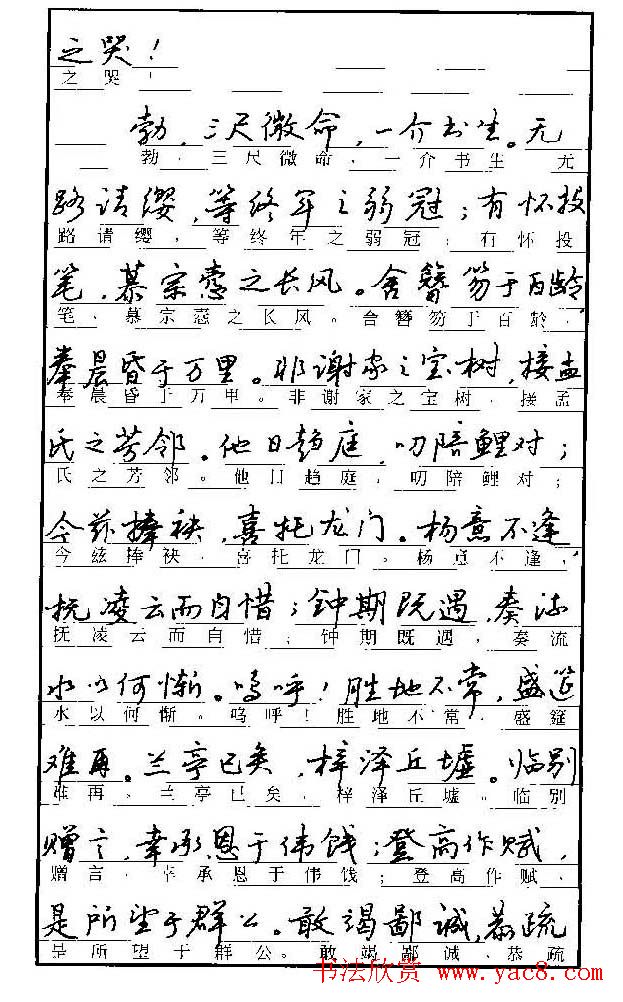 之哭！
之哭！
勃，三尺微命，一介书生。无
勃，三尺微命，一介书生。无
路请缨，等终年之弱冠；有怀投
路请缨，等终年之弱冠；有怀投
笔，慕宗悫之长风。舍簪笏于百龄，
笔，慕宗悫之长风。舍簪笏于百龄，
奉晨昏于万里。非谢家之宝树，接孟
奉晨昏于万里。非谢家之宝树，接孟
氏之芳邻。他日趋庭，叨陪鲤对；
氏之芳邻。他日趋庭，叨陪鲤对；
今兹捧袂，喜托龙门。杨意不逢，
今兹捧袂，喜托龙门。杨意不逢，
抚凌云而自惜；钟期既遇，奏流
抚凌云而自惜；钟期既遇，奏流
水以何惭。呜呼！胜地不常，盛筵
水以何惭。呜呼！胜地不常，盛筵
难再。兰亭已矣，梓泽丘墟。临别
难再。兰亭已矣，梓泽丘墟。临别
赠言，幸承恩于伟饯；登高作赋，
赠言，幸承恩于伟饯；登高作赋，
是所望于群公。敢竭鄙诚，恭疏
是所望于群公。敢竭鄙诚，恭疏
书法欣赏 www.yac8.com